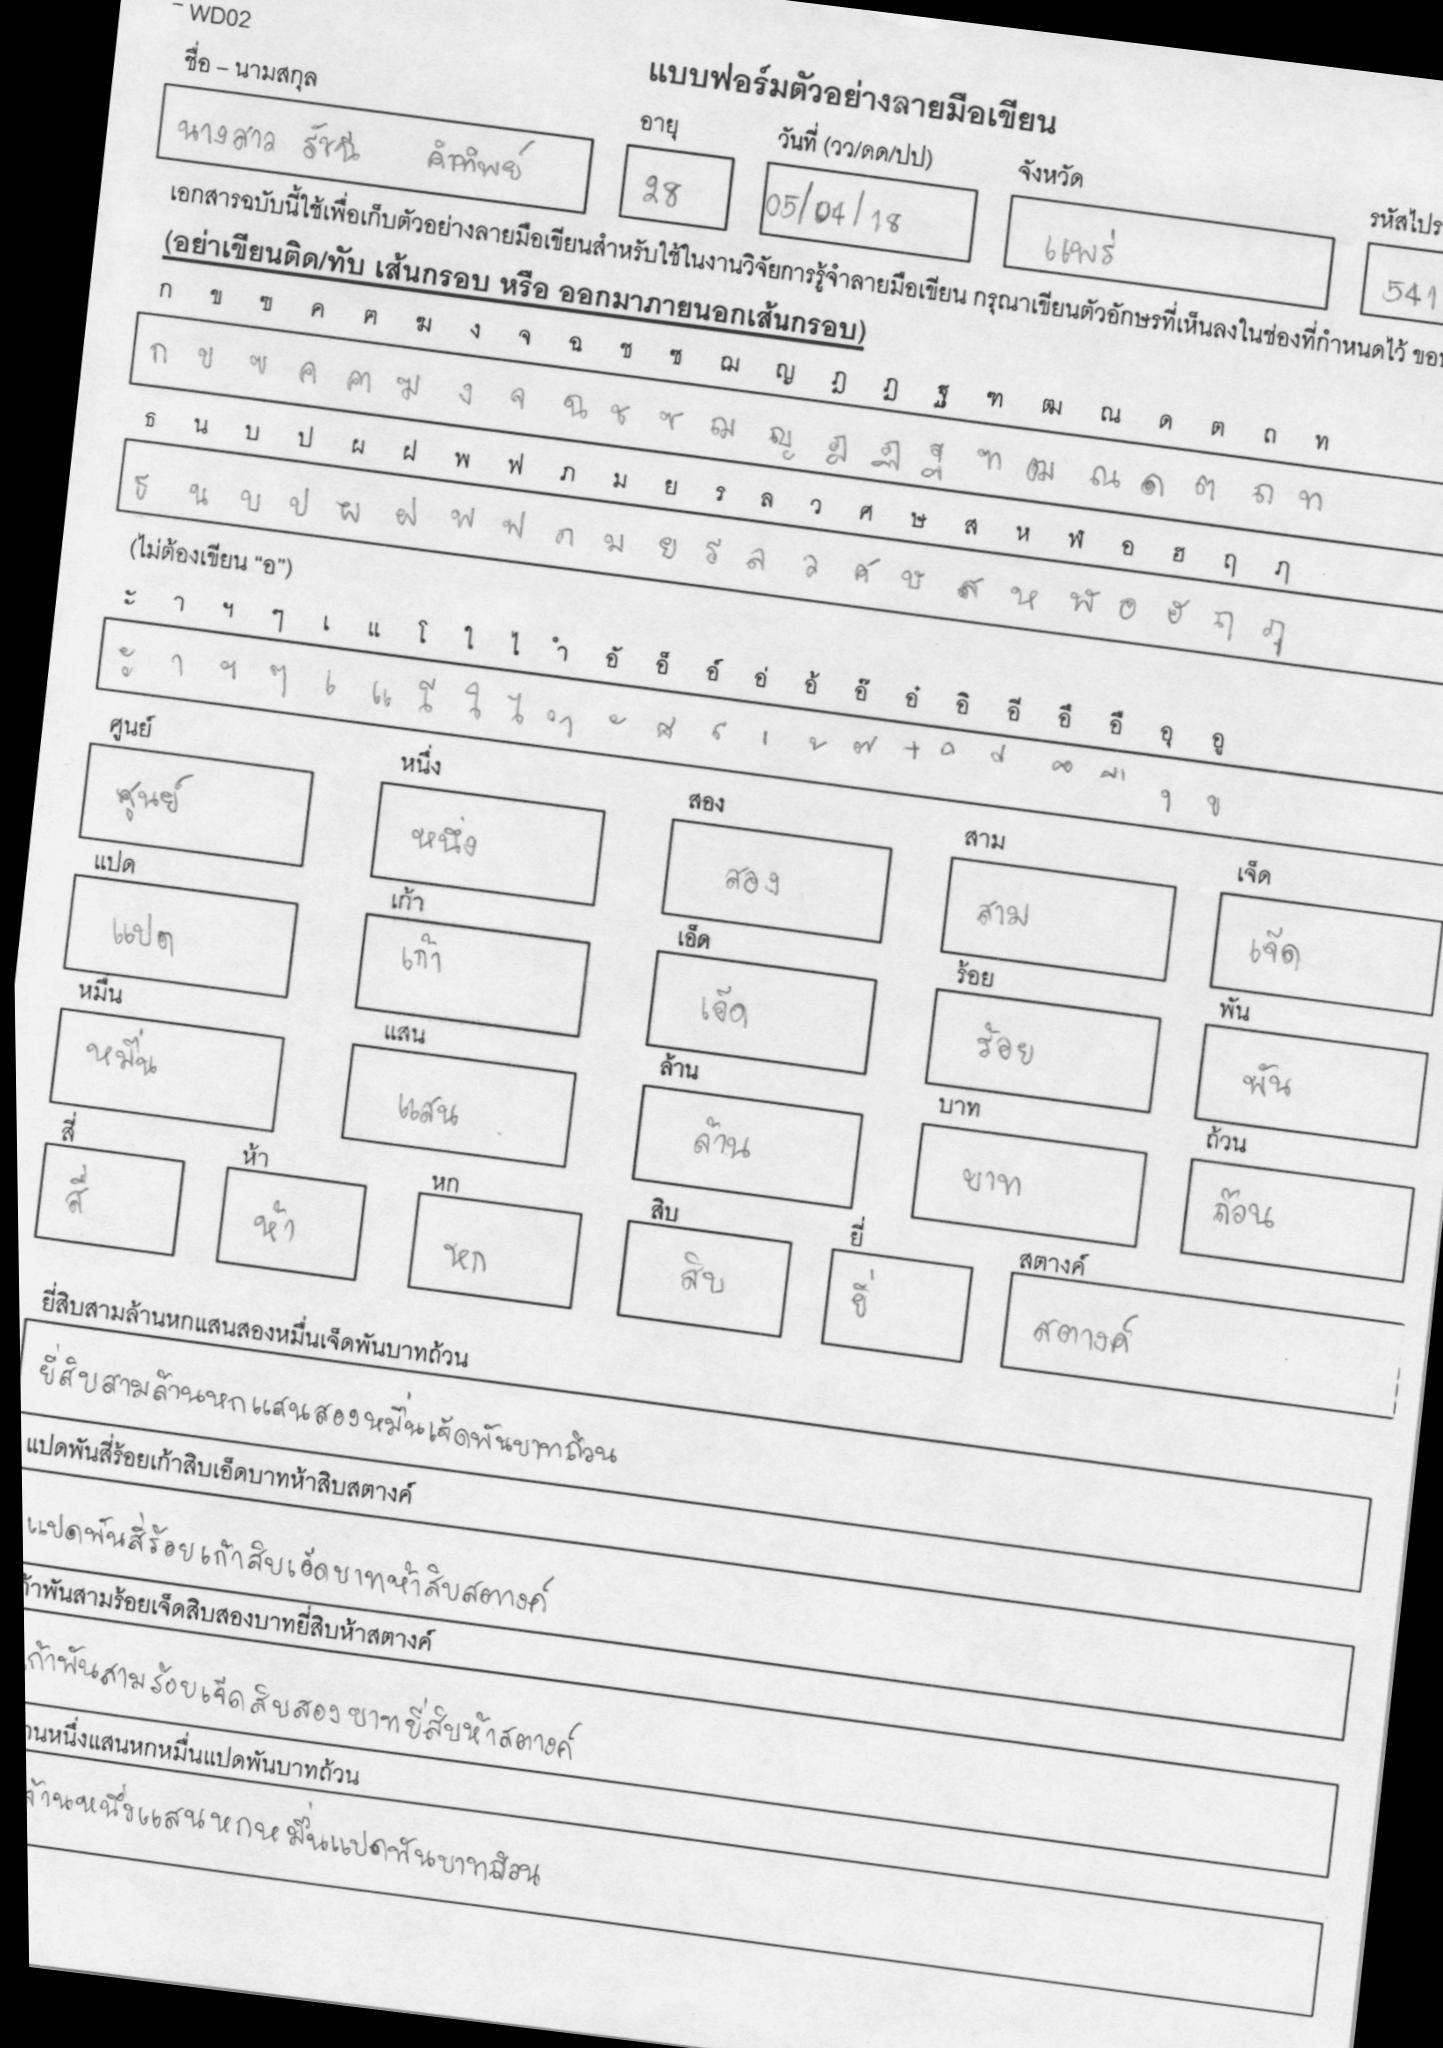 WD02
แบบฟอร์มตัวอย่างลายมือเขียน
ชื่อ – นามสกุล อายุ วันที่ (วว/ดด/ปป) จังหวัด รหัสไปร
นางสาว รัชนี คำทิพย์ 28 05/04/18 แพร่ 541
เอกสารฉบับนี้ใช้เพื่อเก็บตัวอย่างลายมือเขียนสำหรับใช้ในงานวิจัยการรู้จำลายมือเขียน กรุณาเขียนตัวอักษรที่เห็นลงในช่องที่กำหนดไว้
(อย่าเขียนติด/ทับ เส้นกรอบ หรือ ออกมาภายนอกเส้นกรอบ)
ก ข ฃ ค ฅ ฆ ง จ ฉ ช ซ ฌ ญ ฎ ฏ ฐ ฑ ฒ ณ ด ต ถ ท
ก ข ฃ ค ฅ ฆ ง จ ฉ ช ซ ฌ ญ ฎ ฏ ฐ ฑ ฒ ณ ด ต ถ ท
ธ น บ ป ผ ฝ พ ฟ ภ ม ย ร ล ว ศ ษ ส ห ฬ อ ฮ ฤ ฦ
ธ น บ ป ผ ฝ พ ฟ ภ ม ย ร ล ว ศ ษ ส ห ฬ อ ฮ ฤ ฦ
(ไม่ต้องเขียน "อ")
ะ า ฯ ๆ เ แ โ ใ ไ ำ อั อ็ อ์ อ่ อ้ อ๊ อ๋ อิ อี อึ อื อุ อู
ะ า ฯ ๆ เ แ โ ใ ไ ำ ั ็ ์ ่ ้ ๊ ๋ ิ ี ึ ื ุ ู
ศูนย์ หนึ่ง สอง สาม เจ็ด
ศูนย์ หนึ่ง สอง สาม เจ็ด
แปด เก้า เอ็ด ร้อย พัน
แปด เก้า เอ็ด ร้อย พัน
หมื่น แสน ล้าน บาท ถ้วน
หมื่น แสน ล้าน บาท ถ้วน
สี่ ห้า หก สิบ ยี่ สตางค์
สี่ ห้า หก สิบ ยี่ สตางค์
ยี่สิบสามล้านหกแสนสองหมื่นเจ็ดพันบาทถ้วน
ยี่สิบสามล้านหกแสนสองหมื่นเจ็ดพันบาทถ้วน
แปดพันสี่ร้อยเก้าสิบเอ็ดบาทห้าสิบสตางค์
แปดพันสี่ร้อยเก้าสิบเอ็ดบาทห้าสิบสตางค์
ก้าพันสามร้อยเจ็ดสิบสองบาทยี่สิบห้าสตางค์
เก้าพันสามร้อยเจ็ดสิบสองบาทยี่สิบห้าสตางค์
านหนึ่งแสนหกหมื่นแปดพันบาทถ้วน
ล้านหนึ่งแสนหกหมื่นแปดพันบาทถ้วน